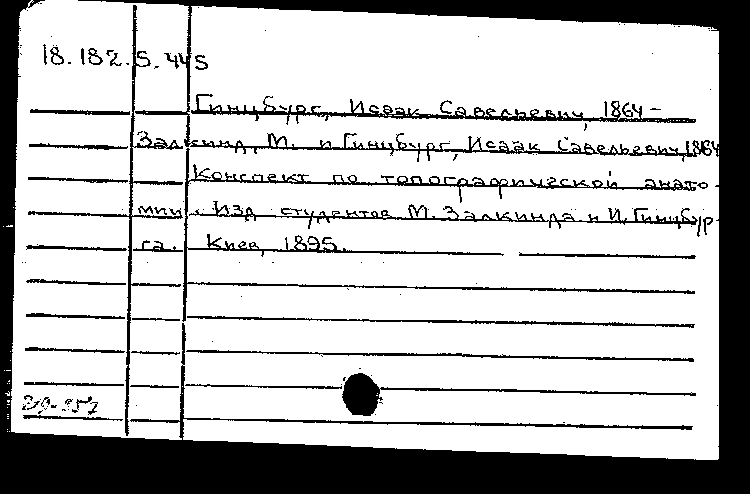 18.182.5.445
Гинцбург, Исаак Савельевич, 1864 -
Залкинд, М. и Гинцбург, Исаак Савельевич, 1864
Конспект по топографической анато-
мии. Изд студентов М. Залкинда и И. Гинцбур-
га. Киев, 1895.